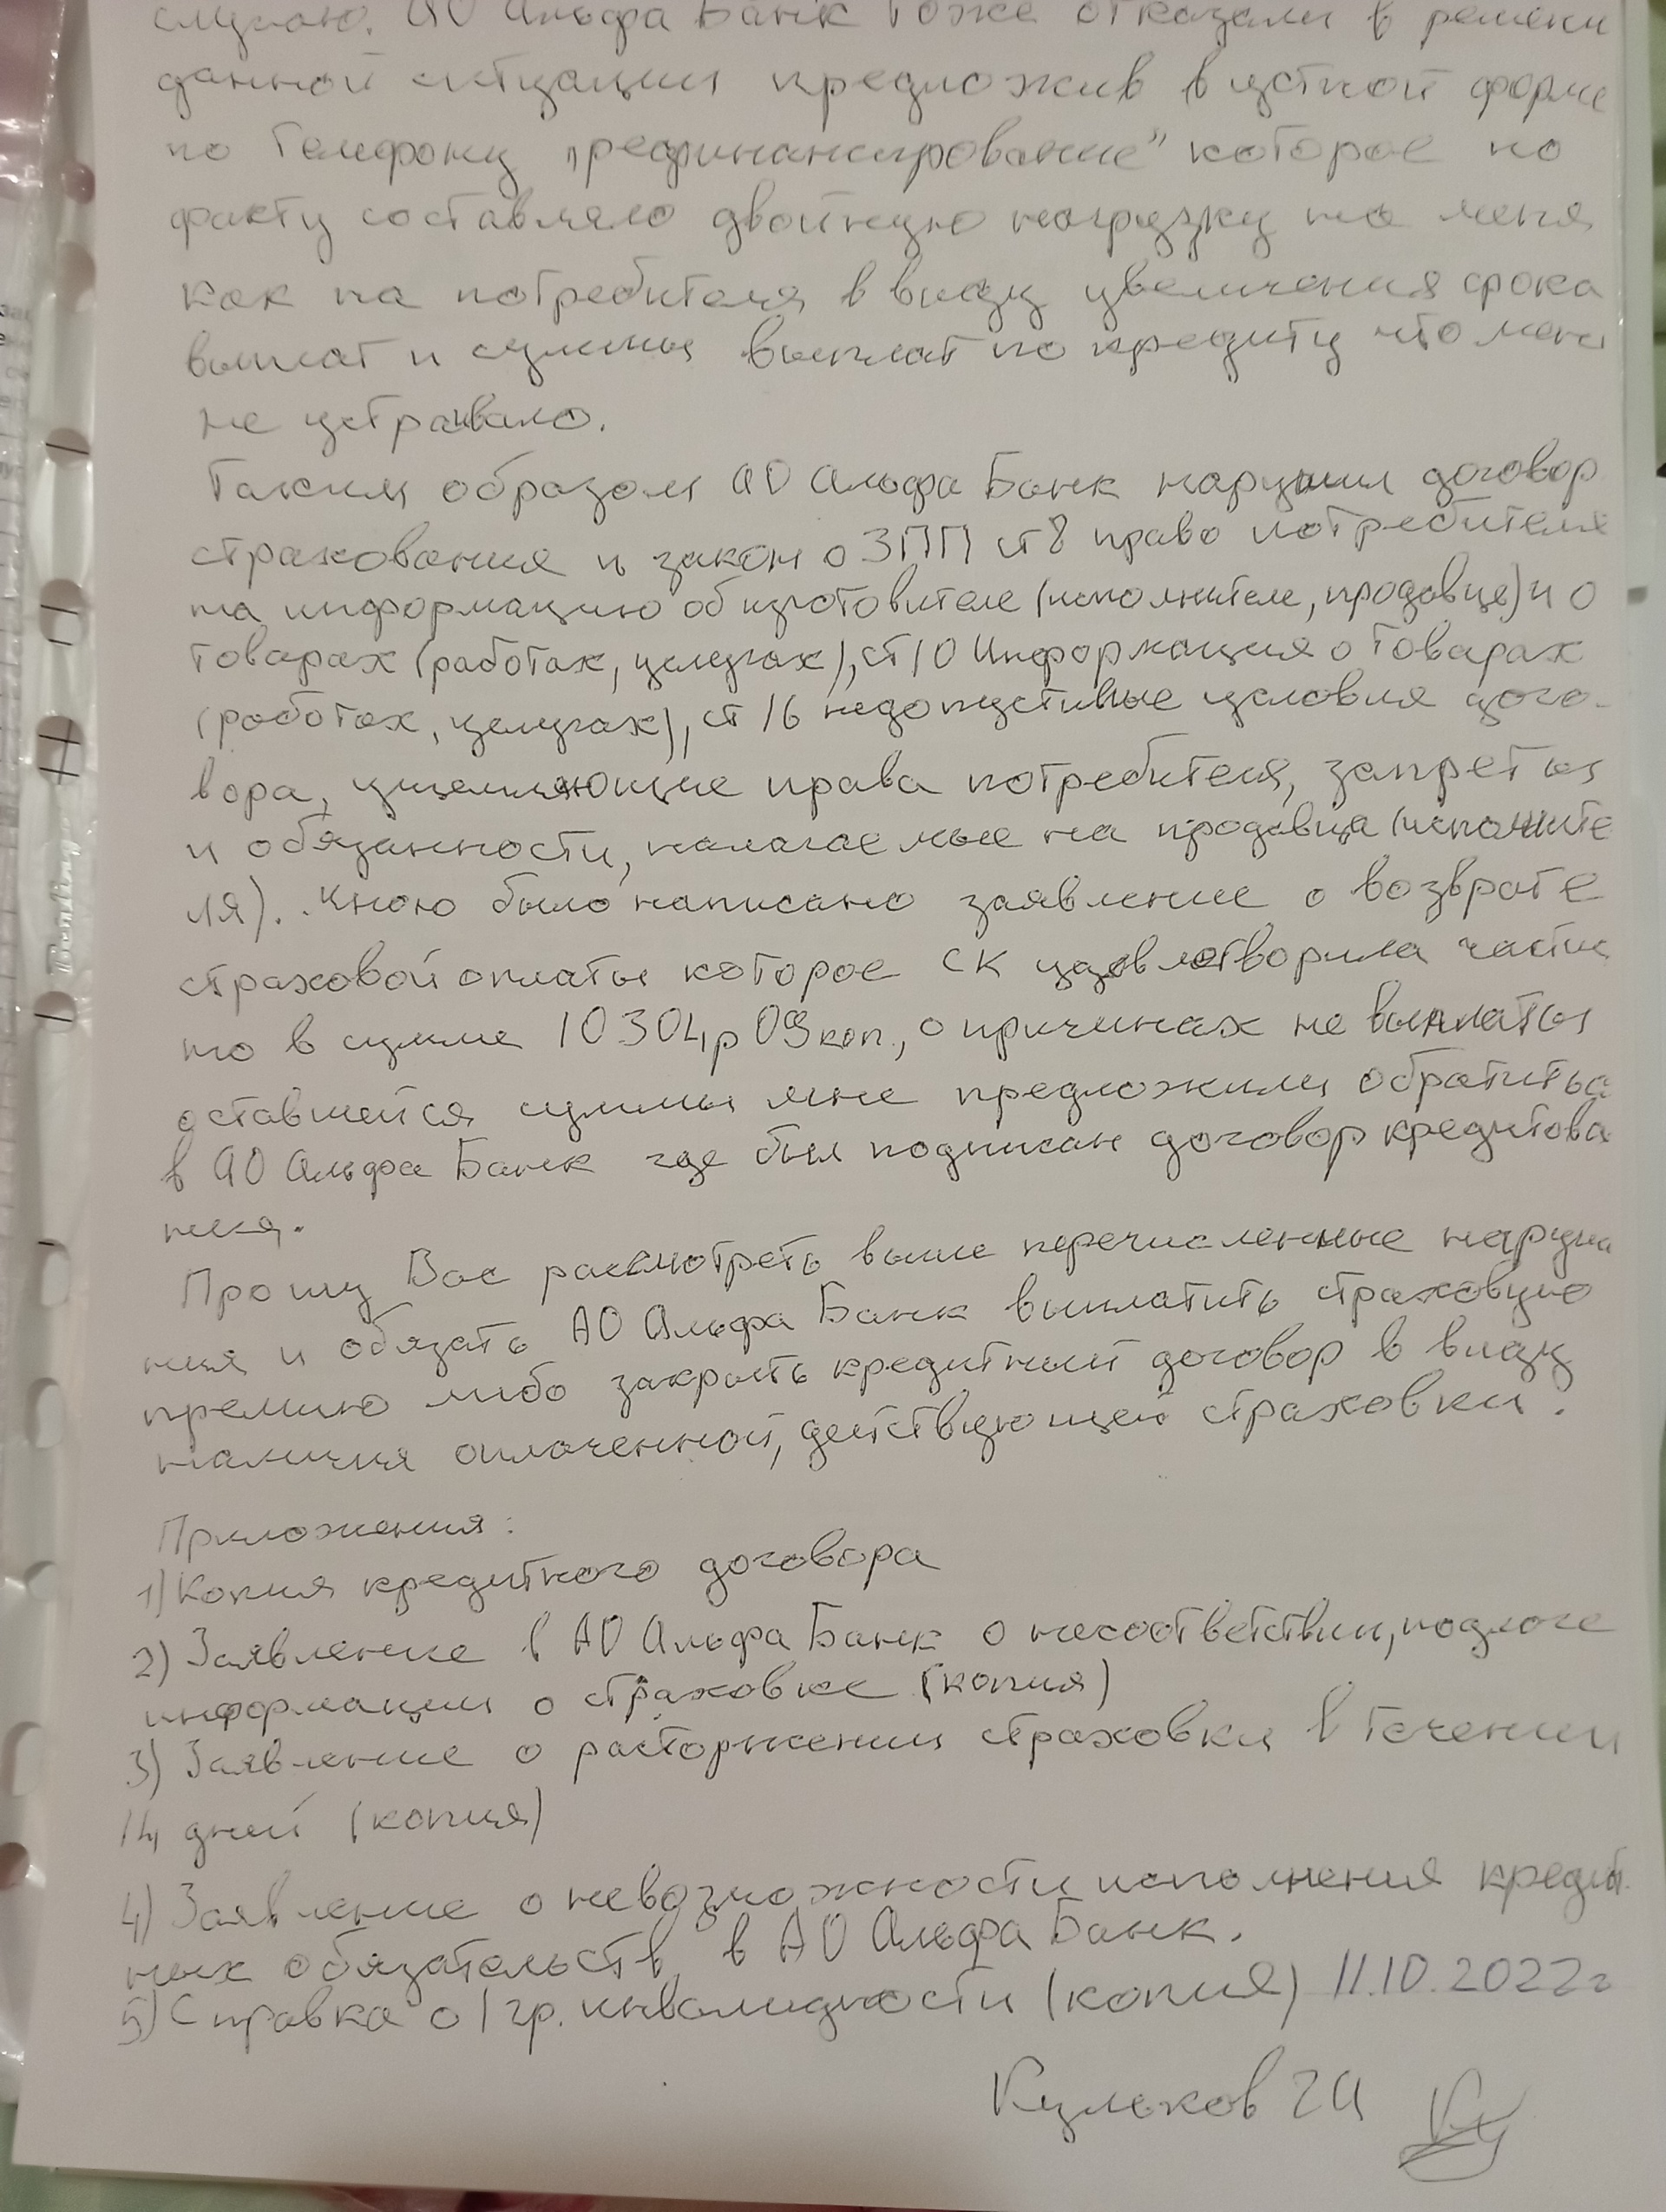 случаю. АО Альфа Банк тоже отказали в решени
данной ситуации предложив в устной форме
по телефону „рефинансирование" которое по
факту составляло двойную нагрузку на меня
как на потребителя в виду увеличения срока
выплат и суммы выплат по кредиту что меня
не устраивало.
Таким образом АО Альфа Банк нарушил договор
страхования и закон о ЗПП ст 8 право потребителя
на информацию об изготовителе (исполнителе, продавце) и о
товарах (работах, услугах), ст 10 Информация о товарах
(работах, услугах), ст 16 недопустимые условия дого-
вора, ущемляющие права потребителя, запреты
и обязанности, налагаемые на продавца (исполните
ля). Мною было написано заявление о возврате
страховой оплаты которое СК удовлетворила частич
но в сумме 10304р 09коп., о причинах не выплаты
оставшейся суммы мне предложили обратиться
в АО Альфа Банк где был подписан договор кредитова
ния.
Прошу Вас рассмотреть выше перечисленные наруше
ния и обязать АО Альфа Банк выплатить страховую
премию либо закрыть кредитный договор в виду
наличия оплаченной, действующей страховки.
Приложения:
1) Копия кредитного договора
2) Заявление в АО Альфа Банк о несоответствии, подлоге
информации о страховке (копия)
3) Заявление о расторжении страховки в течении
14 дней (копия)
4) Заявление о невозможности исполнения кредит
ных обязательств в АО Альфа Банк.
5) Справка о 1 гр. инвалидности (копия) 11.10.2022г
Кульков ГА
Benling